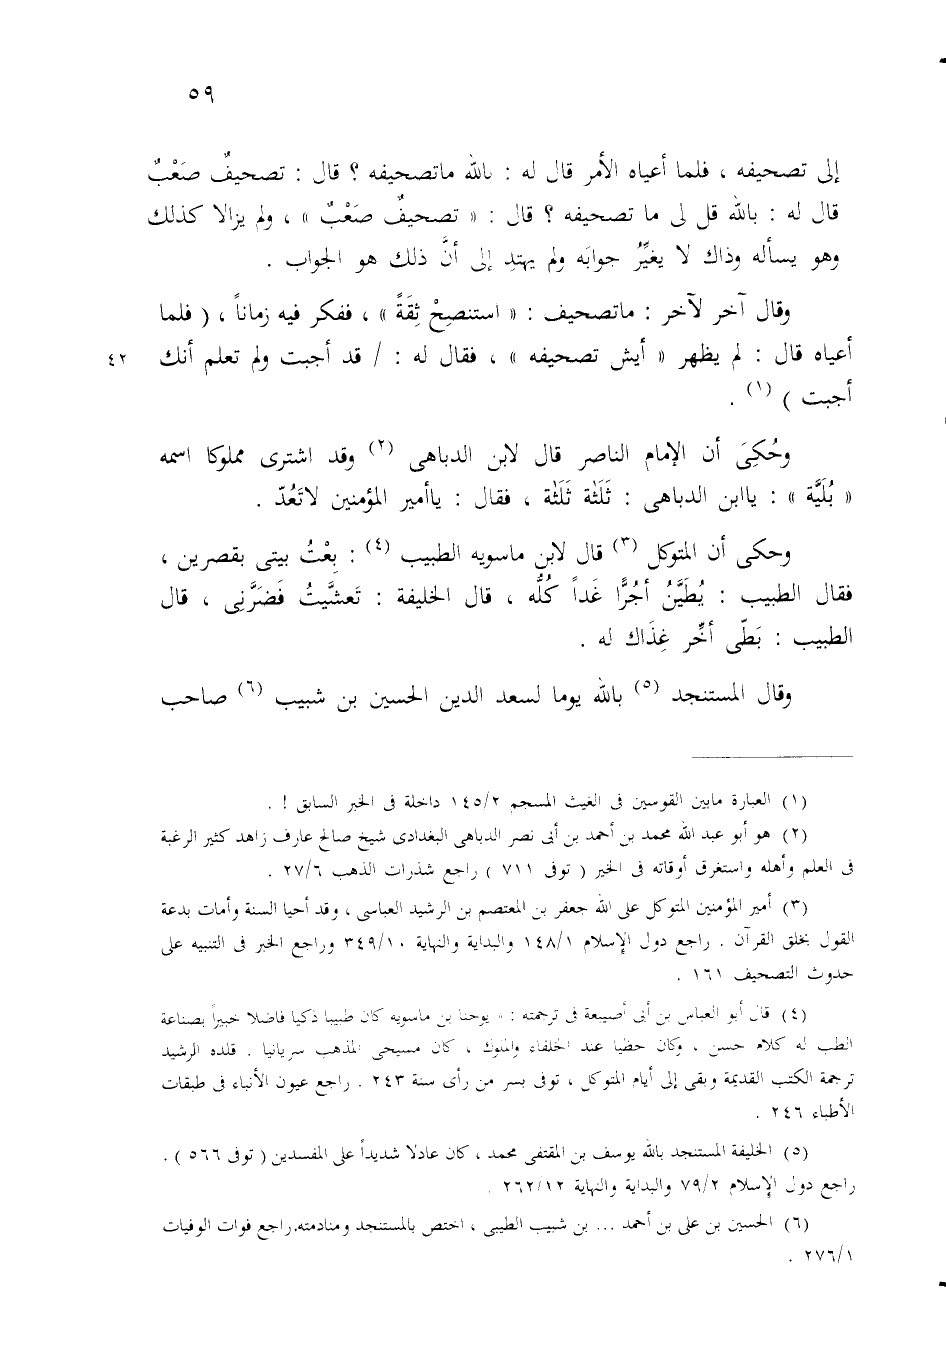 ٥٩
إلى تصحيفه ، فلما أعياه الأمر قال له : بالله ماتصحيفه ؟ قال : تصحيفٌ صَعْبٌ
قال له : بالله قل لى ما تصحيفه ؟ قال : « تصحيفٌ صَعْبٌ » ، ولم يزالا كذلك
وهو يسأله وذاك لا يغيِّرُ جوابَه ولم يهتدِ إلى أنَّ ذلك هو الجواب .
وقال آخر لآخر : ماتصحيف : « استنصِحْ ثِقَةً » ، ففكر فيه زماناً ، ( فلما
أعياه قال : لم يظهر « أيش تصحيفه » ، فقال له : / قد أجبت ولم تعلم أنك ٤٢
أجبت ) (١) .
وحُكِىَ أن الإمام الناصر قال لابن الدباهى (٢) وقد اشترى مملوكا اسمه
« بُلَيَّة » : ياابن الدباهى : ثَلَثة ثَلَثة ، فقال : ياأمير المؤمنين لاتَعُدّ .
وحكى أن المتوكل (٣) قال لابن ماسويه الطبيب (٤) : بِعْتُ بيتى بقصرين ،
فقال الطبيب : يُطَيَّنُ أجُرًّا غَداً كُلُّه ، قال الخليفة : تَعشَّيتُ فَضَرَّنِى ، قال
الطبيب : بَطّى أخِّر غِذَاك له .
وقال المستنجد (٥) بالله يوما لسعد الدين الحسين بن شبيب (٦) صاحب
(١) العبارة مابين القوسين فى الغيث المسجم ١٤٥/٢ داخلة فى الخبر السابق ! .
(٢) هو أبو عبد الله محمد بن أحمد بن أبى نصر الدباهى البغدادى شيخ صالح عارف زاهد كثير الرغبة
فى العلم وأهله واستغرق أوقاته فى الخير ( توفى ٧١١ ) راجع شذرات الذهب ٢٧/٦ .
(٣) أمير المؤمنين المتوكل على الله جعفر بن المعتصم بن الرشيد العباسى ، وقد أحيا السنة وأمات بدعة
القول بخلق القرآن . راجع دول الإسلام ١٤٨/١ والبداية والنهاية ٣٤٩/١٠ وراجع الخبر فى التنبيه على
حدوث التصحيف ١٦١ .
(٤) قال أبو العباس بن أبى أصيبعة فى ترجمته : « يوحنا بن ماسويه كان طبيبا ذكيا فاضلا خبيراً بصناعة
الطب له كلام حسن ، وكان حظيا عند الخلفاء والملوك ، كان مسيحى المذهب سريانيا . قلده الرشيد
ترجمة الكتب القديمة وبقى إلى أيام المتوكل ، توفى بسر من رأى سنة ٢٤٣ . راجع عيون الأنباء فى طبقات
الأطباء ٢٤٦ .
(٥) الخليفة المستنجد بالله يوسف بن المقتفى محمد ، كان عادلا شديداً على المفسدين ( توفى ٥٦٦ ) .
راجع دول الإسلام ٧٩/٢ والبداية والنهاية ٢٦٢/١٢ .
(٦) الحسين بن على بن أحمد ... بن شبيب الطيبى ، اختص بالمستنجد ومنادمته، راجع فوات الوفيات
٢٧٦/١ .